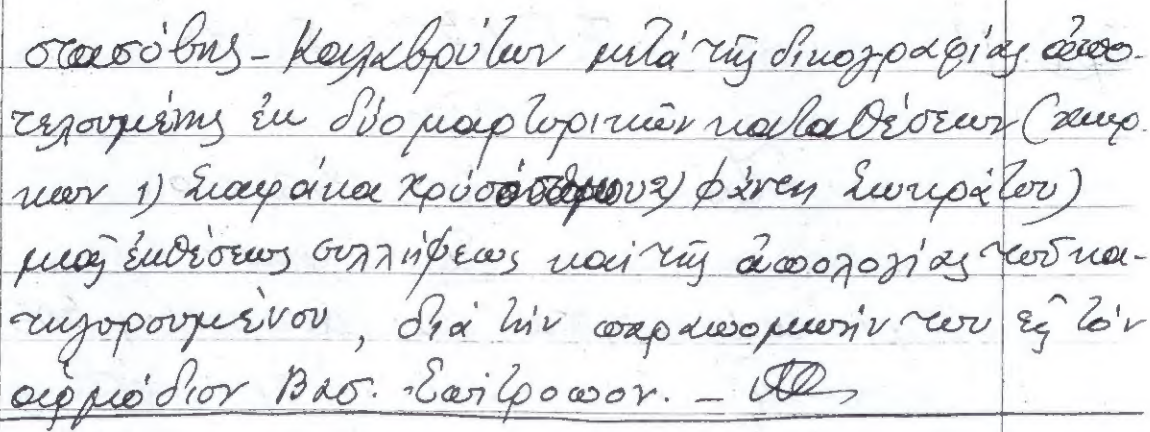 στασόβης - Καλαβρύτων μετά τῆς δικογραφίας ἀπο-
τελουμένης ἐκ δύο μαρτυρικῶν καταθέσεων (
1) Σιαφάκα 2) Φάνση Σωκράτου)
μιᾶς ἐκθέσεως συλλήψεως καί τῆς ἀπολογίας τοῦ κα-
τηγορουμένου, διά τήν παραπομπήν του εἰς τόν
ἁρμόδιον Βασ. Ἐπίτροπον. -